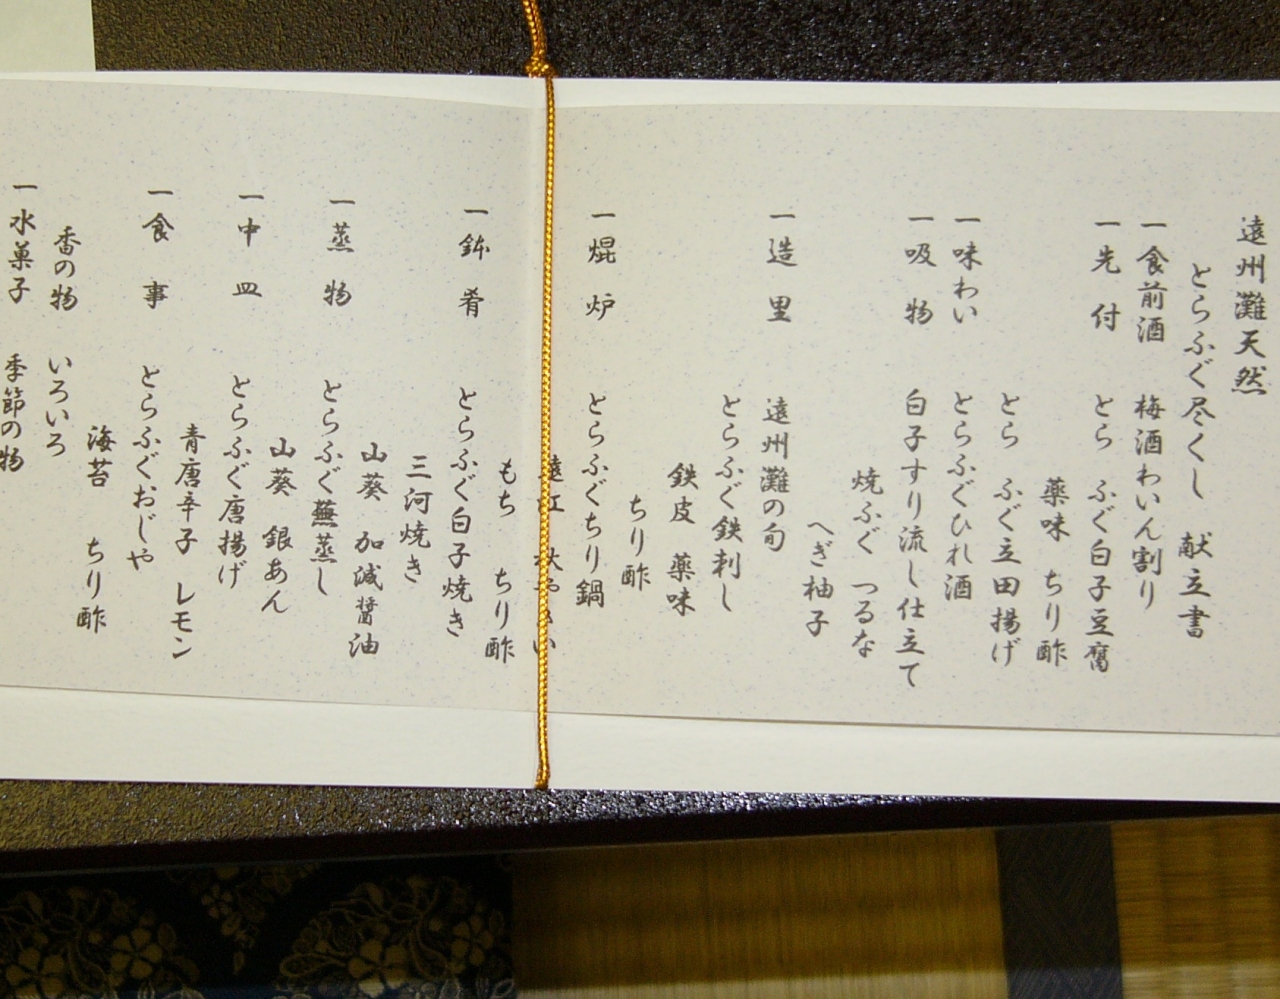 遠州灘天然
とらふぐ尽くし 献立書
一食前酒 梅酒わいん割り
一先付 とらふぐ白子豆腐
薬味 ちり酢
とらふぐ立田揚げ
一味わい とらふぐひれ酒
一吸物 白子すり流し仕立て
焼ふぐ つるな
へぎ柚子
一造里 遠州灘の旬
とらふぐ鉄刺し
鉄皮 薬味
ちり酢
一焜炉 とらふぐちり鍋
もち ちり酢
一鉢肴 とらふぐ白子焼き
三河焼き
山葵 加減醤油
一蒸物 とらふぐ蕪蒸し
山葵 銀あん
一中皿 とらふぐ唐揚げ
青唐辛子 レモン
一食事 とらふぐおじや
海苔 ちり酢
香の物 いろいろ
一水菓子 季節の物